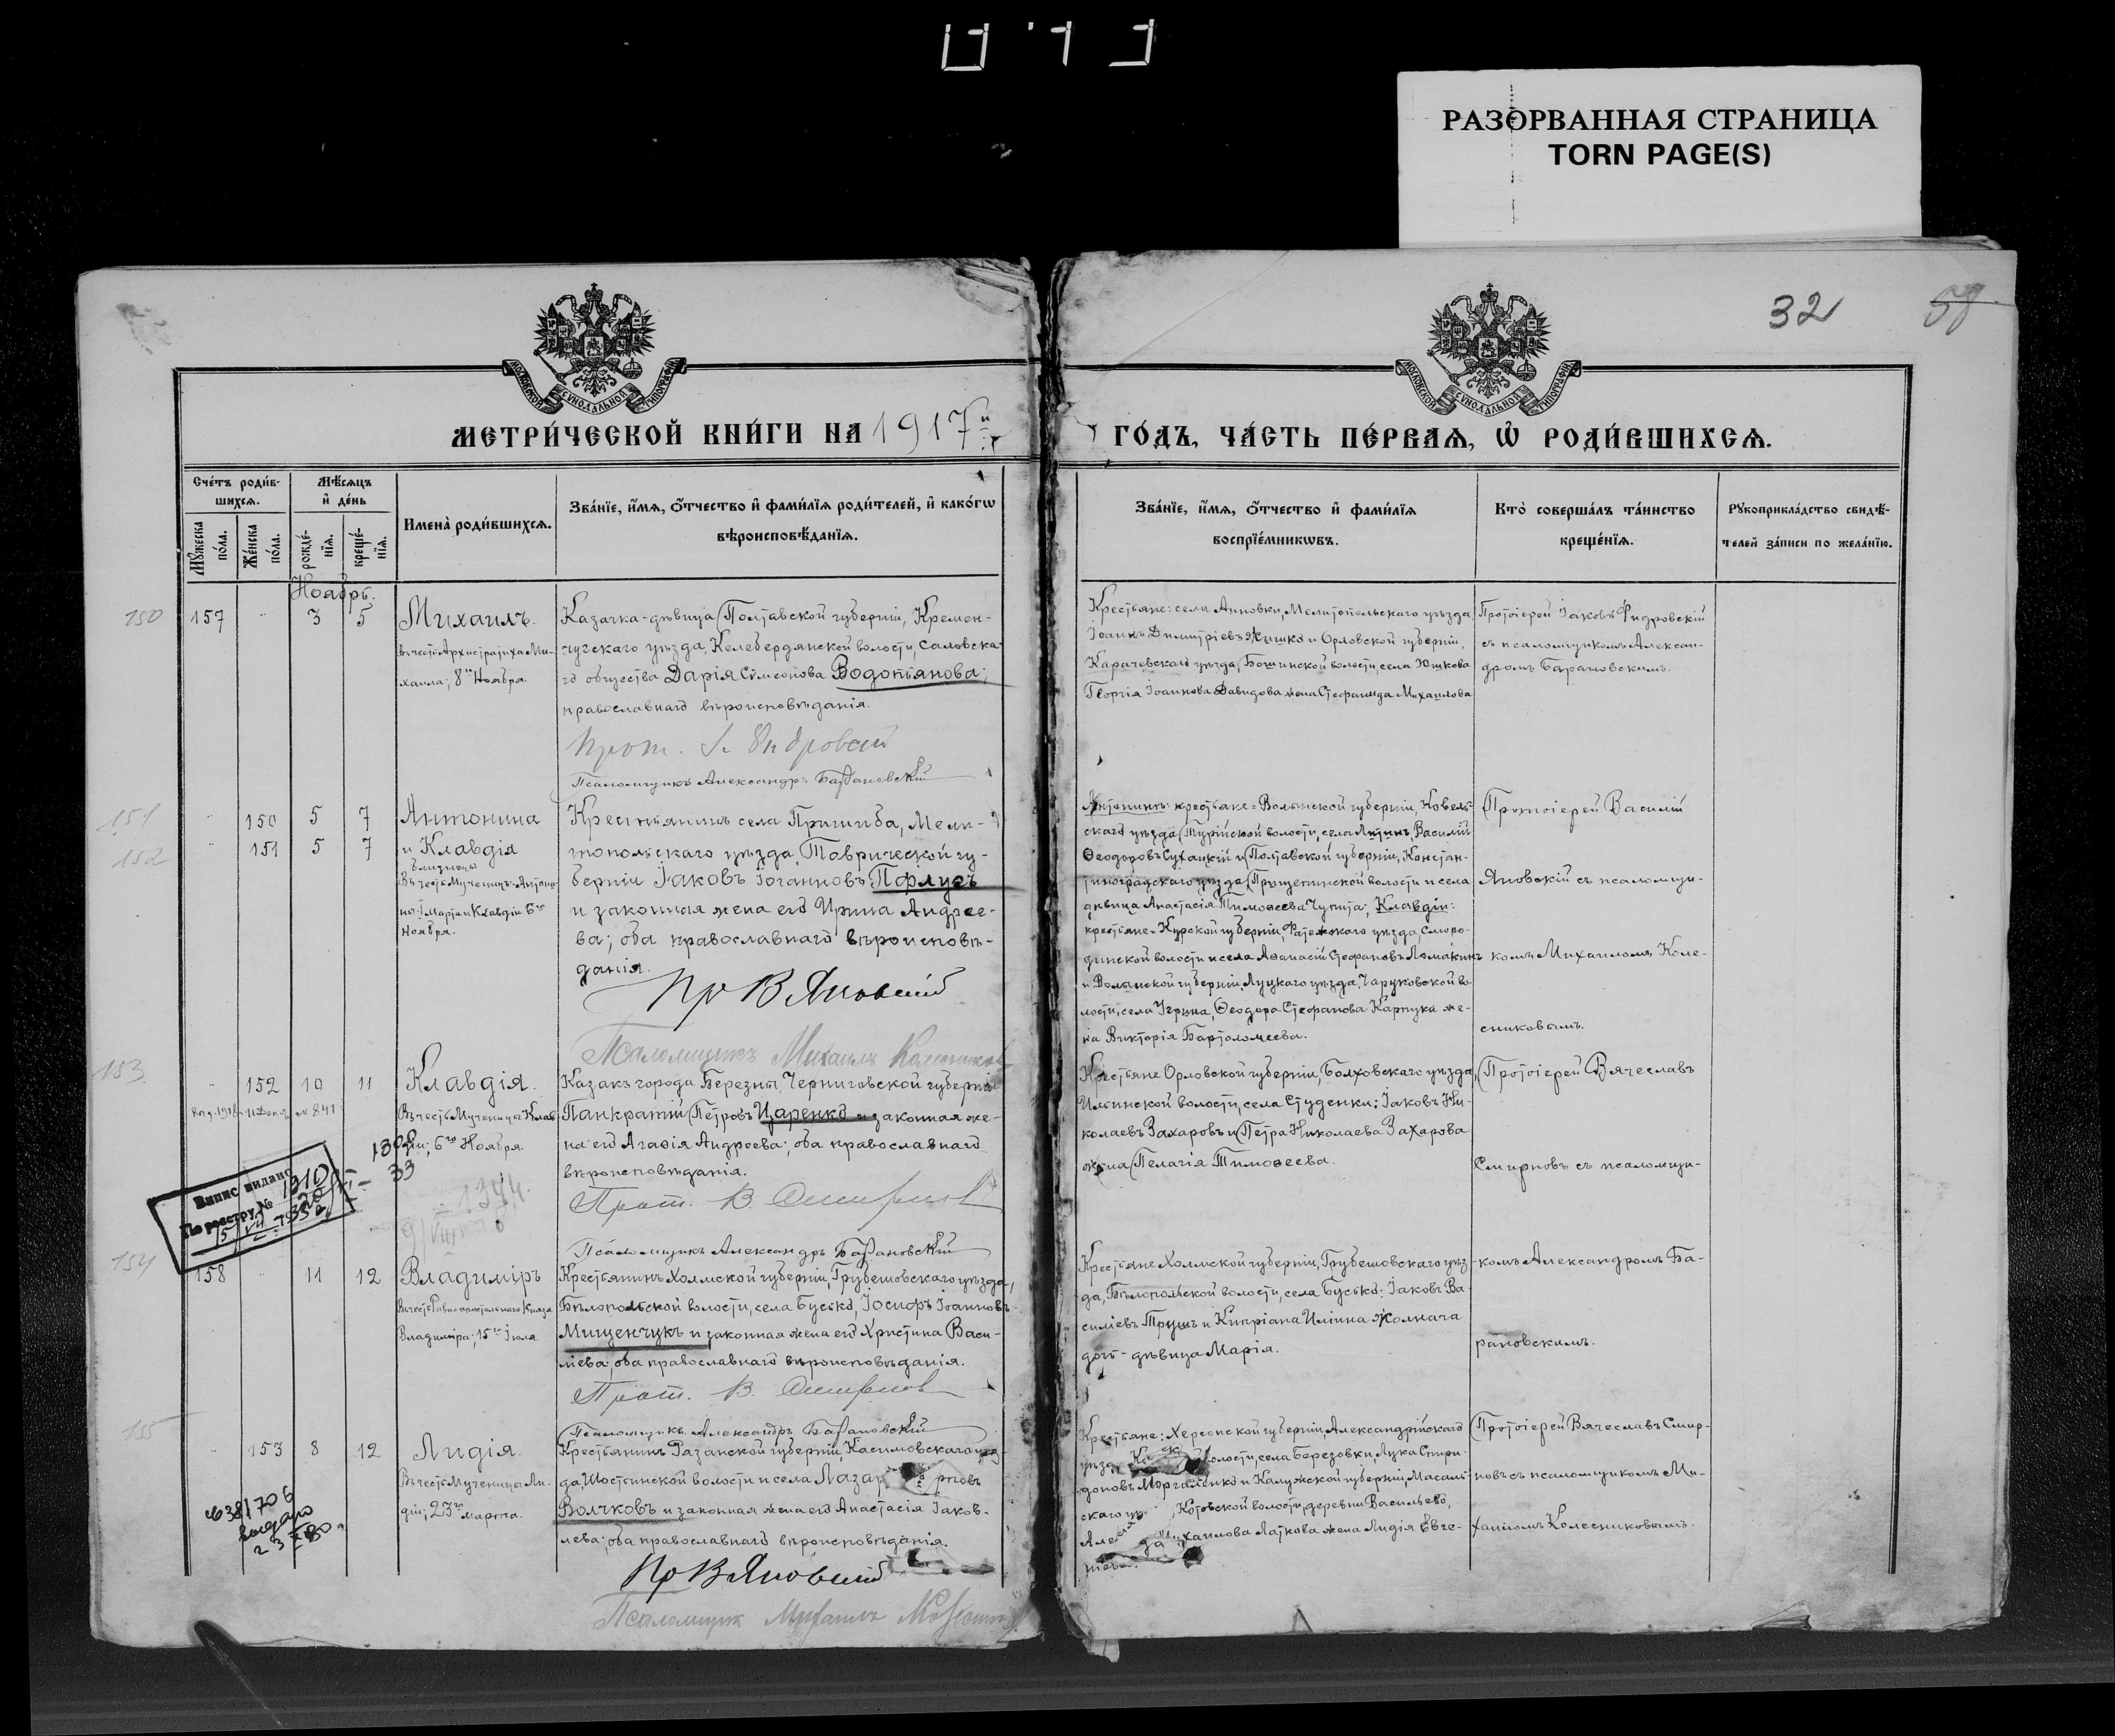 РАЗОРВАННАЯ СТРАНИЦА
TORN PAGE(S)
32
58
МОСКОВСКОЙ СѴНОДАЛЬНОЙ ТИПОГРАФІИ
МОСКОВСКОЙ СѴНОДАЛЬНОЙ ТИПОГРАФІИ
МЕТРИ́ЧЕСКОЙ КНИ́ГИ НА 1917й
ГО́ДЪ, ЧА́СТЬ ПЕ́РВАѦ, Ѽ РОДИ́ВШИХСѦ.
Сче́тъ роди́в-
шихсѧ.
Мѣ́сѧцъ
и҆ де́нь
Мꙋ́жеска по́ла.
Же́нска по́ла.
рожде́-
нїѧ.
креще́-
нїѧ.
Имена̀ роди́вшихсѧ.
Зва́нїе, и҆́мѧ, ѻ҆́тчество и҆ фами́лїѧ роди́телей, и҆ како́гѡ
вѣроисповѣ́данїѧ.
Зва́нїе, и҆́мѧ, ѻ҆́тчество и҆ фами́лїѧ
воспрїе́мникѡвъ.
Кто̀ соверша́лъ та́инство
креще́нїѧ.
Рꙋкоприкла́дство свидѣ́-
телей за́писи по жела́нїю.
Ноябрь.
150 157 " 3 5 Михаилъ.
въ честь Архистратига Ми-
хаила; 8го Ноября
Казачка-дѣвица Полтавской губерніи, Кремен-
чугскаго уѣзда, Келебердянской волости, Саловска-
го общества Дарія Сѵмеонова Водопьянова;
православнаго вѣроисповѣданія.
Прот. І. Фидровскій
Псаломщикъ Александръ Барановскій
Крестьяне: села Анновки, Мелитопольскаго уѣзда,
Іоаннъ Димитріевъ и Орловской губерніи,
Карачевскаго уѣзда, Бошинской волости, села Юшкова
Георгія Іоаннова Давидова жена Стефанида Михаилова
Протоіерей Іаковъ Фидровскій
съ псаломщикомъ Алексан-
дромъ Барановскимъ.
151 " 150 5 7 Антонина
152 " 151 5 7 и Клавдія
близнецы
Въ честь Мученицъ: Антони-
ны 1 Марта и Клавдіи 6го
Ноября.
Крестьянинъ села Пришиба, Мели-
топольскаго уѣзда, Таврической гу-
берніи Іаковъ Іоганновъ Пфлугъ
и законная жена его Ирина Андрее-
ва; оба православнаго вѣроисповѣ-
данія.
Пр В Яновскій
Псаломщикъ Михаилъ Колесников
Антонины: крестьяне = Волынской губерніи, Ковель-
скаго уѣзда, Турійской волости, села Василій
Ѳеодоровъ Сухацкій и Полтавской губерніи, Констан-
тиноградскаго уѣзда, волости и села
дѣвица Анастасія Тимоѳеева Чупита; Клавдіи:
крестьяне = Курской губерніи, Фатежскаго уѣзда, Сморо-
динской волости и села Аѳанасій Стефановъ Ломакинъ
и Волынской губерніи, Луцкаго уѣзда, Чаруковской во-
лости, села Угрина, Ѳеодора Стефанова Карпука же-
на Викторія Бартоломеева.
Протоіерей Василій
Яновскій съ псаломщи-
комъ Михаиломъ Коле-
сниковымъ.
153 " 152 10 11 Клавдія.
№ 841
Въ честь Мученицы Клав-
діи; 6го Ноября.
Казакъ города Березны, Черниговской губерніи
Панкратій Петровъ Царенко и законная же-
на его Агаѳія Андреева; оба православнаго
вѣроисповѣданія.
Прот. В. Смирнов
Псаломщикъ Александръ Барановскій
Випис видано
По реєстру № 1310
1344.
Крестьяне Орловской губерніи, Болховскаго уѣзда,
Ильинской волости, села Студенки: Іаковъ Ни-
колаевъ Захаровъ и Петра Николаева Захарова
жена Пелагія Тимоѳеева.
Протоіерей Вячеславъ
Смирновъ съ псаломщи-
комъ Александромъ Ба-
рановскимъ.
154 158 " 11 12 Владиміръ
Въ честь Равноапостольнаго Князя
Владиміра; 15го Іюля
Крестьянинъ Холмской губерніи, Грубешовскаго уѣзда,
Бѣлопольской волости, села Буськд, Іосифъ Іоанновъ
Мищенчукъ и законная жена его Христина Васи-
ліева; оба православнаго вѣроисповѣданія.
Прот. В. Смирнов
Псаломщикъ Александръ Барановскій
Крестьяне Холмской губерніи, Грубешовскаго уѣз-
да, Бѣлопольской волости, села Буськд: Іаковъ Ва-
силіевъ и Кипріана Иліина Жолнача
дочь - дѣвица Марія.
155 " 153 8 12 Лидія.
Въ честь Мученицы Ли-
діи; 23го марта.
№381706
выдано
Крестьянинъ Рязанской губерніи, Касимовскаго уѣз-
да, волости и села
Волчковъ и законная жена его Анастасія Іаков-
лева; оба православнаго вѣроисповѣданія.
Пр В Яновскій
Псаломщик Михаилъ
Крестьяне: Херсонской губерніи, Александрійскаго
волости, села Березовки, Лука Спири-
доновъ и Калужской губерніи, Масаль-
скаго волости, деревни Васильево,
жена Лидія Евге-
ніева.
Протоіерей Вячеславъ Смир-
новъ съ псаломщикомъ Ми-
хаиломъ Колесниковымъ.